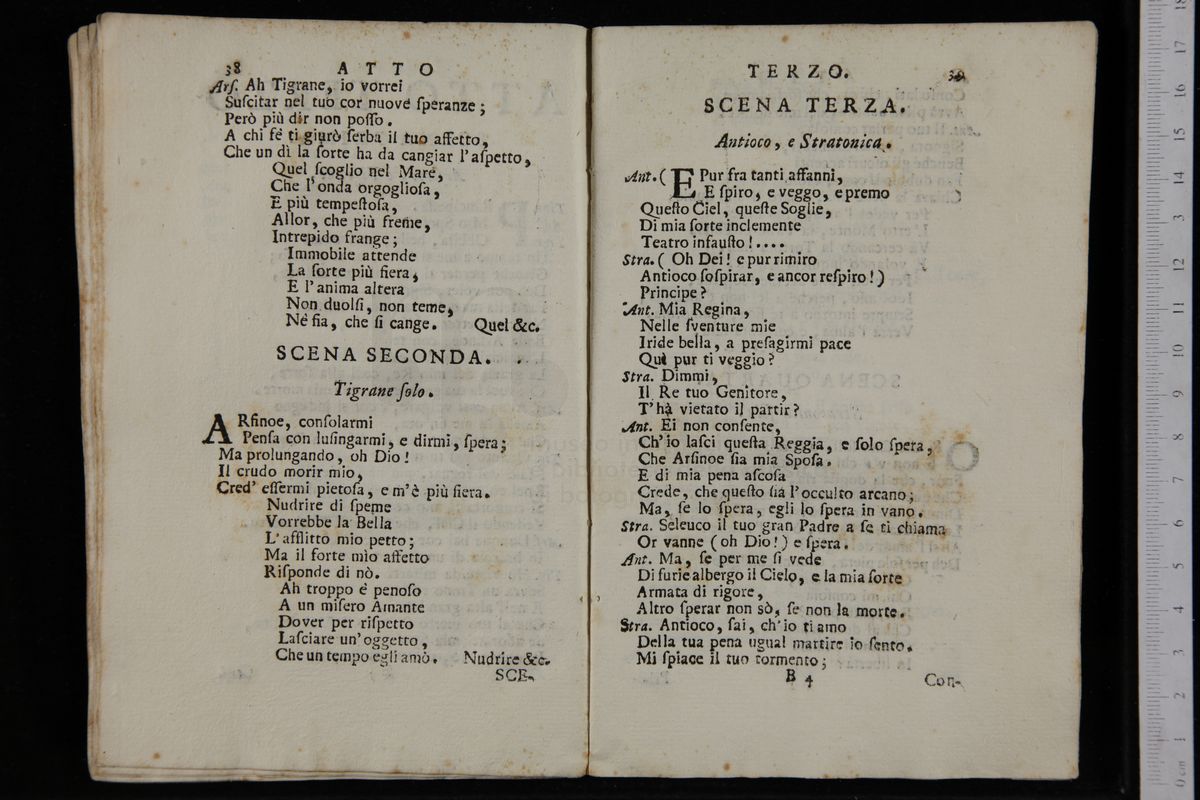 38 ATTO
Arſ. Ah Tigrane, io vorrei
Suſcitar nel tuo cor nuove ſperanze;
Però più dir non poſſo.
A chi fè ti giurò ſerba il tuo affetto,
Che un dì la ſorte ha da cangiar l'aſpetto,
Quel ſcoglio nel Mare,
Che l'onda orgoglioſa,
E più tempeſtoſa,
Allor, che più freme,
Intrepido frange;
Immobile attende
La ſorte più fiera,
E l'anima altera
Non duolſi, non teme,
Nè fia, che ſi cange. Quel &c.
SCENA SECONDA.
Tigrane ſolo.
ARſinoe, conſolarmi
Penſa con luſingarmi, e dirmi, ſpera;
Ma prolungando, oh Dio!
Il crudo morir mio,
Cred' eſſermi pietoſa, e m'è più fiera.
Nudrire di ſpeme
Vorrebbe la Bella
L'afflitto mio petto;
Ma il forte mio affetto
Riſponde di nò.
Ah troppo è penoſo
A un miſero Amante
Dover per riſpetto
Laſciare un'oggetto,
Che un tempo egli amò. Nudrire &c.
SCE-
TERZO. 39
SCENA TERZA.
Antioco, e Stratonica.
Ant. (E Pur fra tanti affanni,
E ſpiro, e veggo, e premo
Queſto Ciel, queſte Soglie,
Di mia ſorte inclemente
Teatro infauſto!....
Stra. ( Oh Dei! e pur rimiro
Antioco ſoſpirar, e ancor reſpiro!)
Principe?
Ant. Mia Regina,
Nelle ſventure mie
Iride bella, a preſagirmi pace
Quì pur ti veggio?
Stra. Dimmi,
Il Re tuo Genitore,
T'hà vietato il partir?
Ant. Ei non conſente,
Ch'io laſci queſta Reggia, e ſolo ſpera,
Che Arſinoe ſia mia Spoſa.
E di mia pena aſcoſa
Crede, che queſto ſia l'occulto arcano;
Ma, ſe lo ſpera, egli lo ſpera in vano.
Stra. Seleuco il tuo gran Padre a ſe ti chiama
Or vanne (oh Dio!) e ſpera.
Ant. Ma, ſe per me ſi vede
Di furie albergo il Cielo, e la mia ſorte
Armata di rigore,
Altro ſperar non sò, ſe non la morte.
Stra. Antioco, ſai, ch'io ti amo
Della tua pena ugual martire io ſento.
Mi ſpiace il tuo tormento;
B 4 Con-